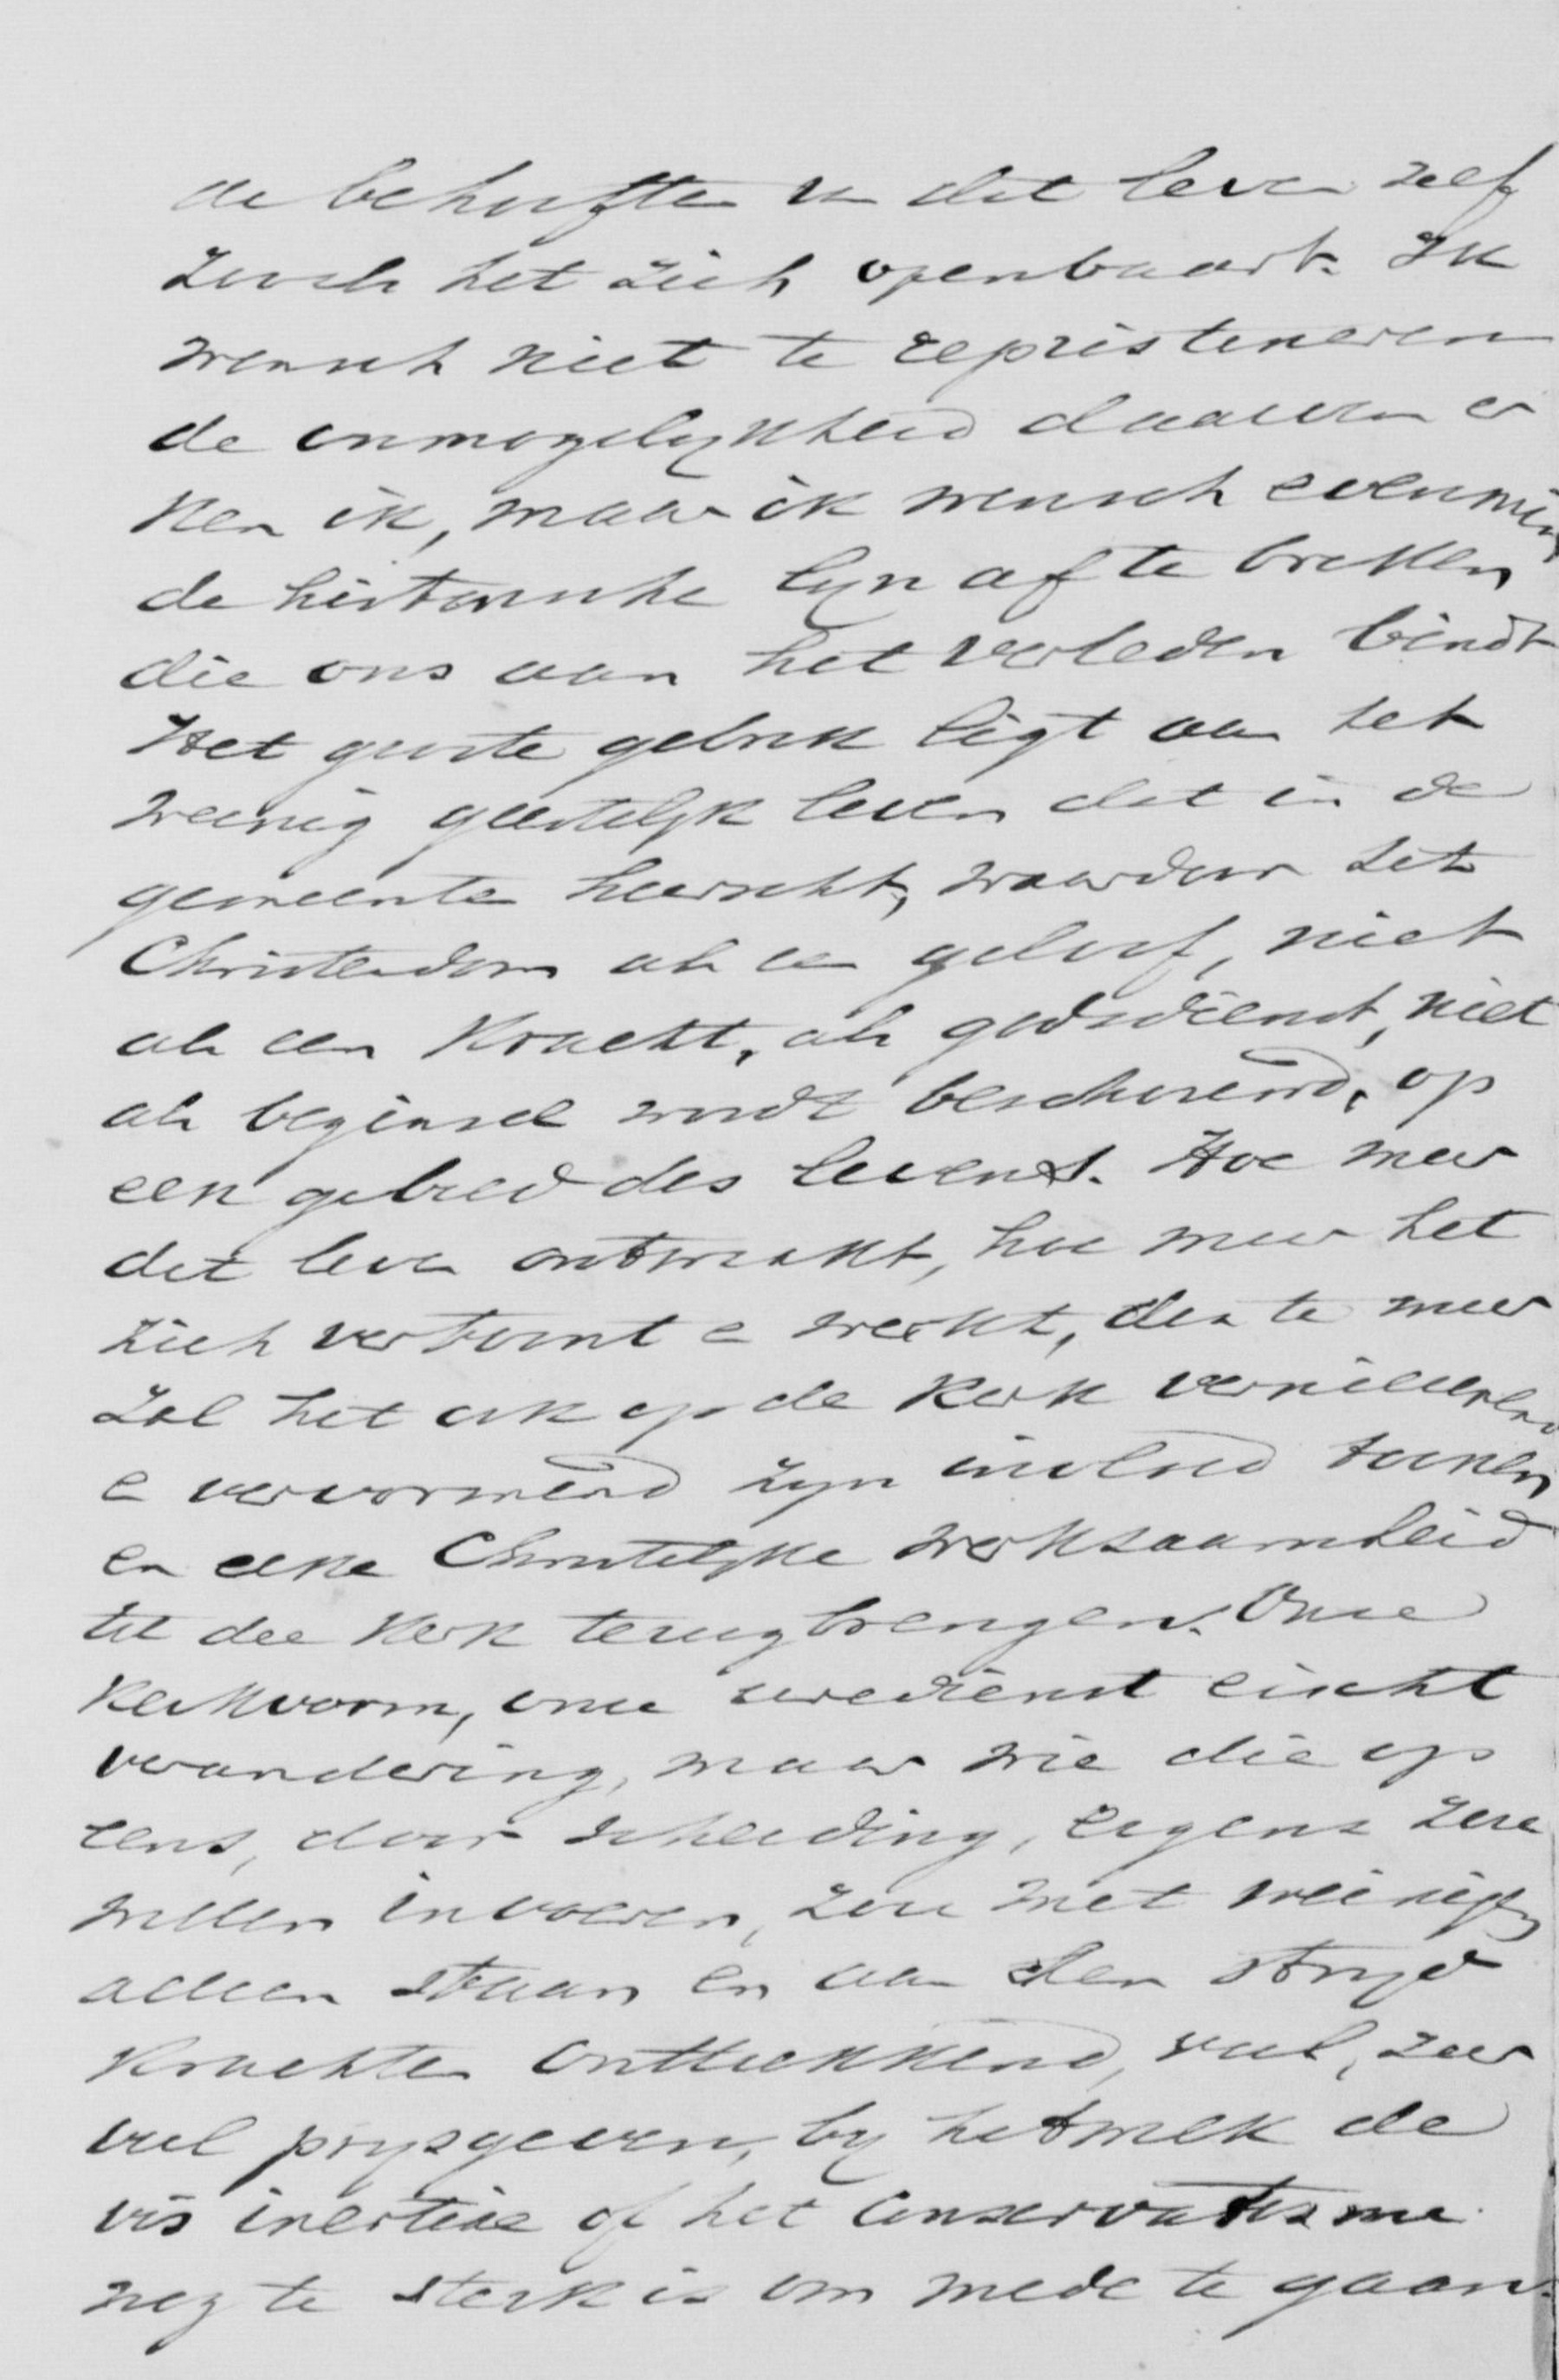 de behoeften v dit leven zelf
zooals het zich openbaart. Ik
wensch niet te repristineren
de onmogelijkheid daarvan er
ken ik, maar ik wensch evenmin
de historische lyn af te breken
die ons aan het verleden bindt
Het groote gebrek ligt aan het
weinig geestelyk leven dat in de
gemeente heerscht, waardoor het
Christendom als een geloof, niet
als een kracht, als godsdienst, niet
als beginsel wordt beschouwd, op
een gebied des levens. Hoe meer
dit leven ontwaakt, hoe meer het
zich vertoont e werkt, des te meer
zal het ook op de kerk vernieuwend
e vervormend zyn invloed toonen
en elke Christelyke werkzaamheid
tot die kerk terugbrengen. Onze
kerkvorm, onze eredienst eischt
verandering, maar wie die op
eens, door scheiding, ergens zou
willen invoeren, zou met weinigen
alleen staan en aan den stryd
krachten onttrekkend, veel, zeer
veel prysgeven, by hetwelk de
vis inertiae of het conservatisme
nog te sterk is om mede te gaan.